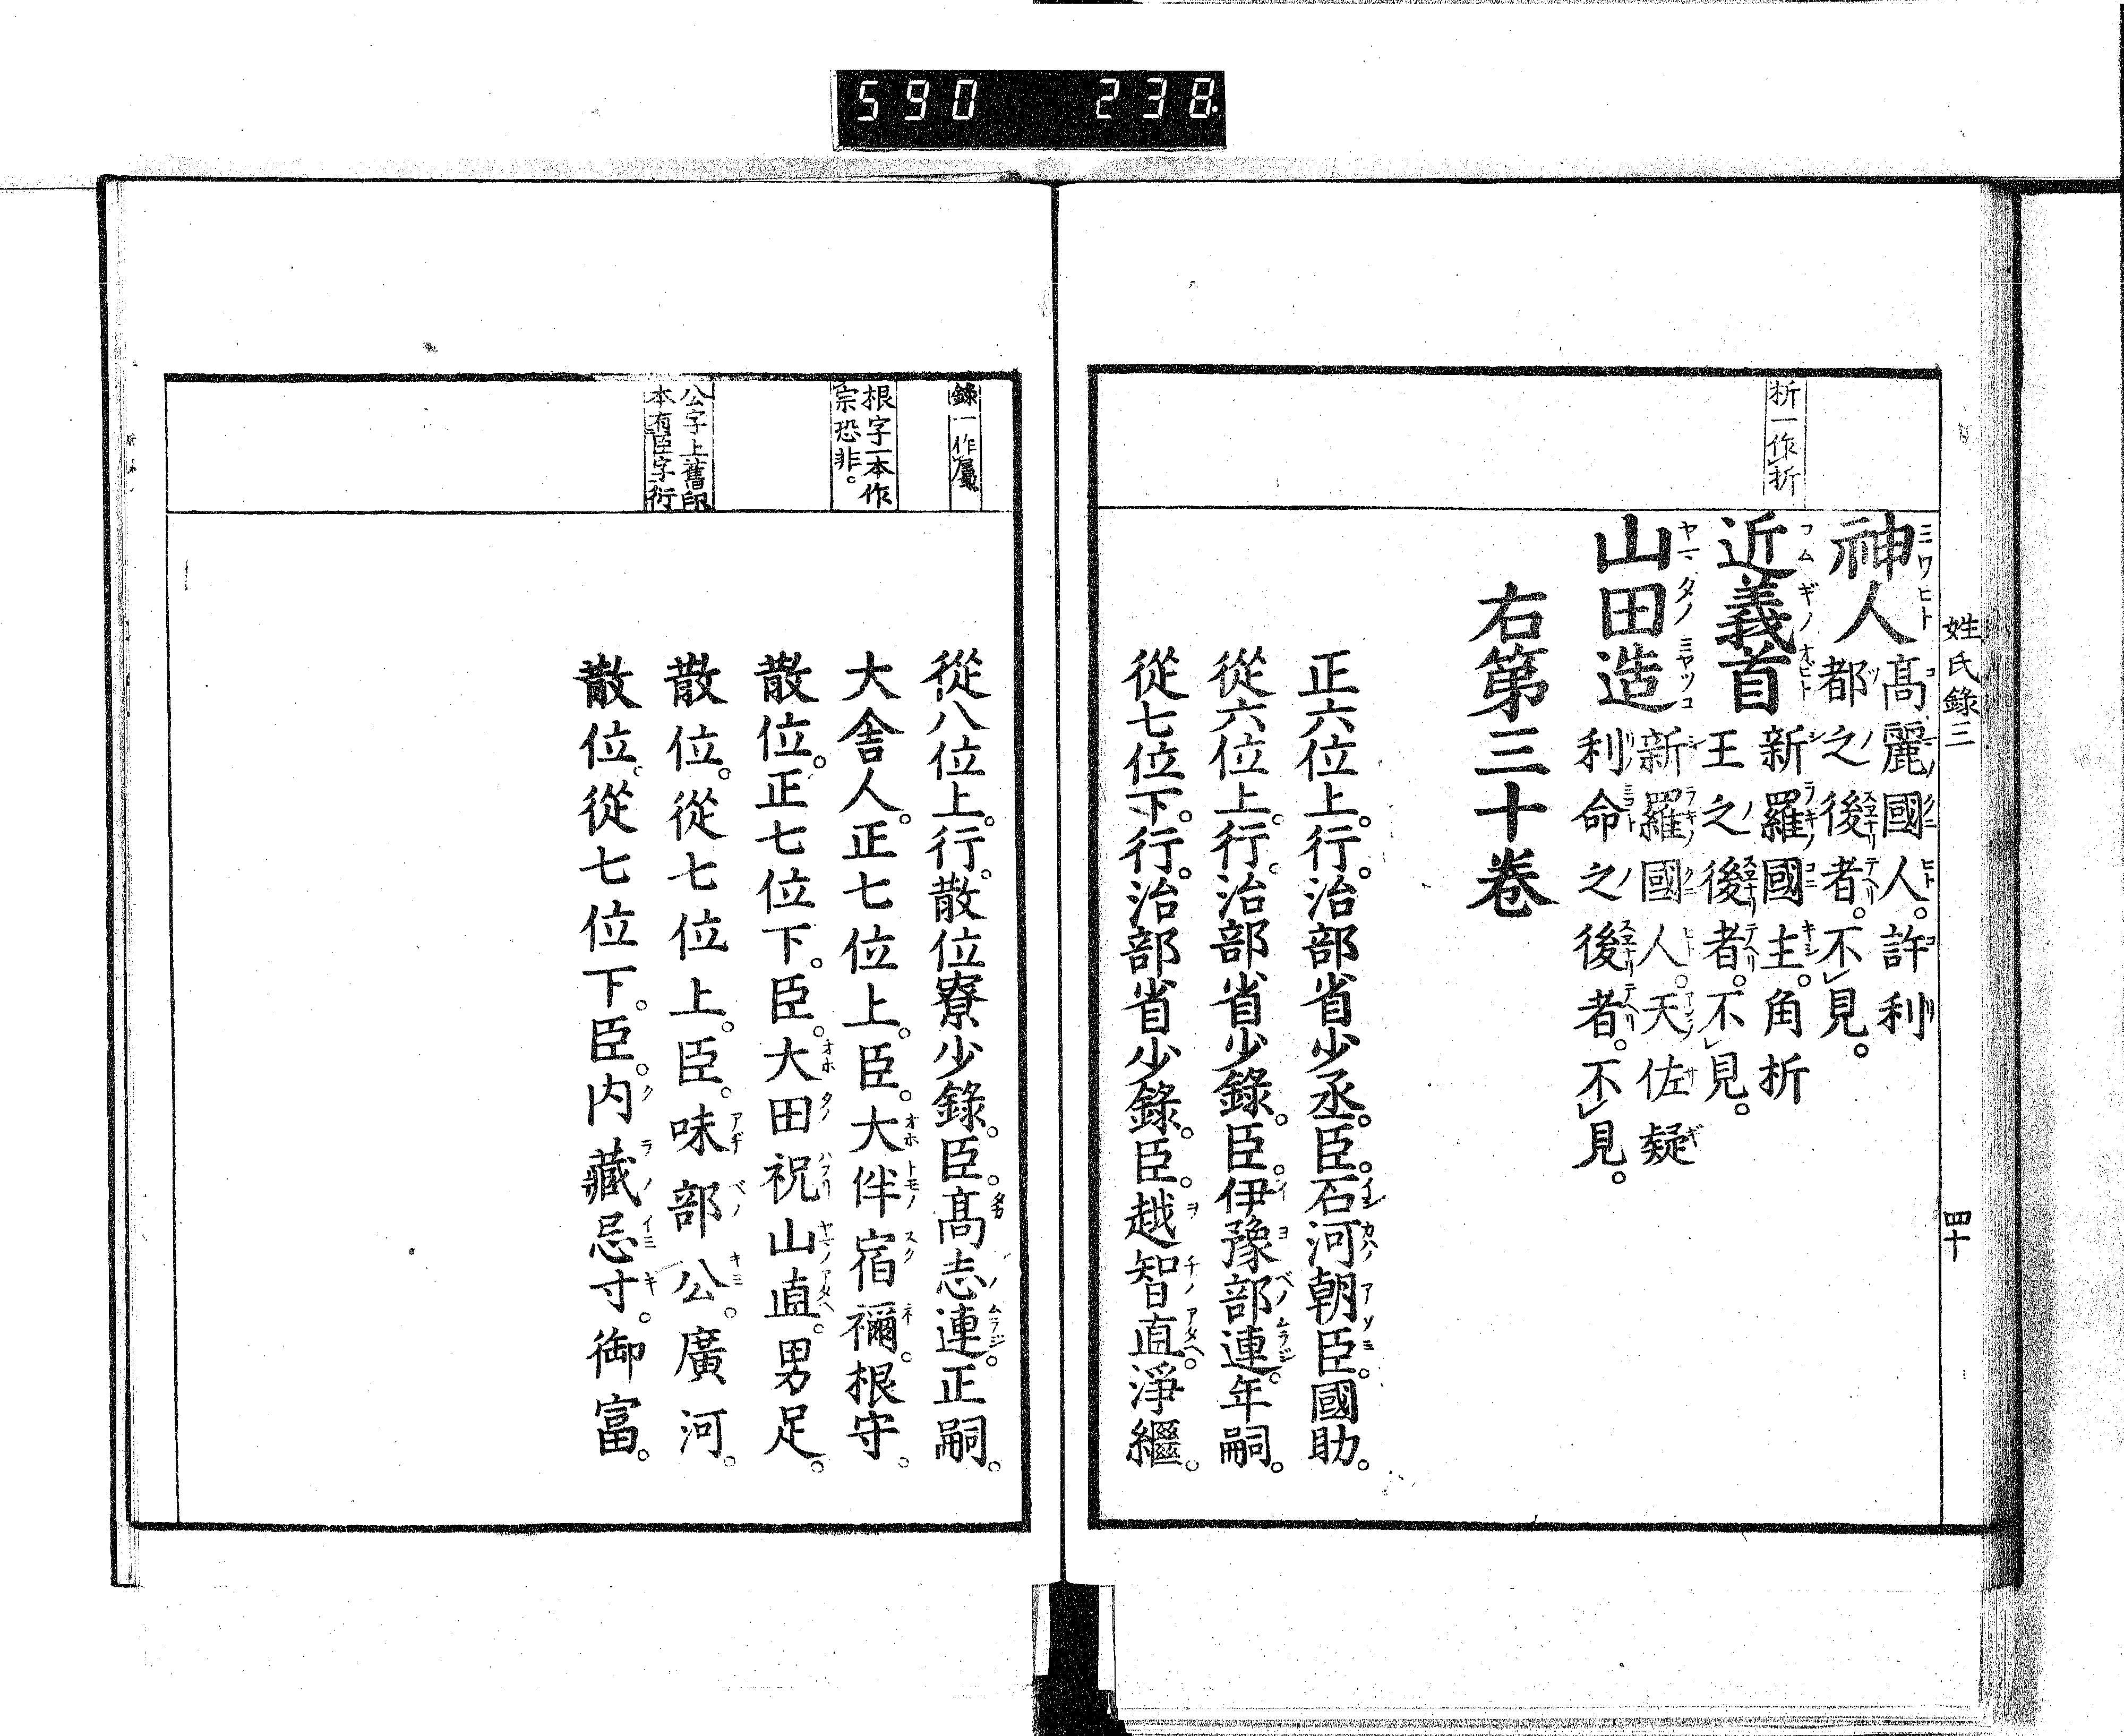 590 238
姓氏錄三
四十
析一作折
神人高麗國人。許利
都之後者。不見。
近義首新羅國主。角折
王之後者。不見。
山田造新羅國人。天佐疑
利命之後者。不見。
右第三十卷
正六位上。行。治部省少丞。臣。石河朝臣。國助。
從六位上。行。治部省少錄。臣。伊豫部連。年嗣。
從七位下。行。治部省少錄。臣。越智直。淨繼。
錄一作屬
根字一本作
宗恐非。
公字上舊印
本有臣字衍
從八位上。行。散位寮少錄。臣。高志連。正嗣。
大舍人。正七位上。臣。大伴宿禰。根守。
散位。正七位下。臣。大田祝山直。男足。
散位。從七位上。臣。味部公。廣河。
散位。從七位下。臣。内藏忌寸。御富。